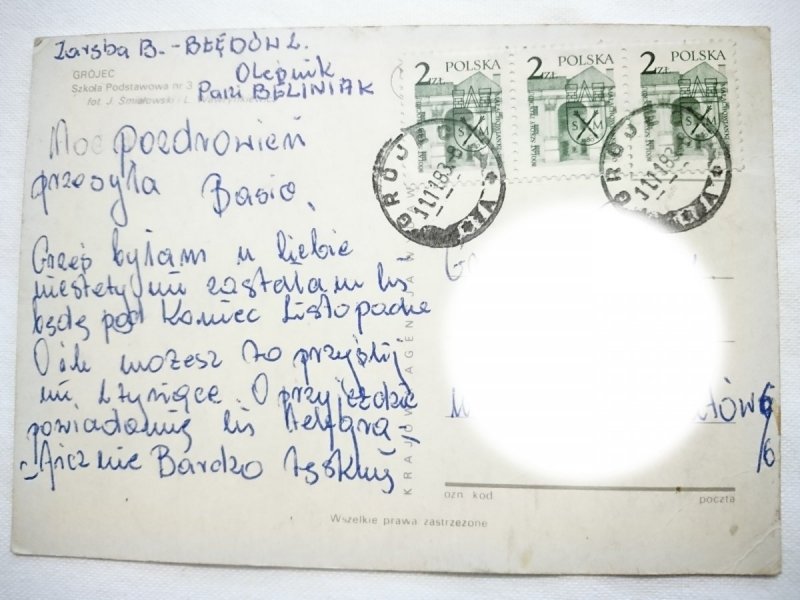 Zaręba B. - BŁĘDÓW 2.
Olejnik
Pani BELINIAK
GRÓJEC
Szkoła Podstawowa nr 3
fot. J. Śmiałowski
Moc pozdrowień
przesyła Basia.
Grześ byłam u Ciebie
niestety nie zastałam Cię
będę pod Koniec Listopada
O ile możesz to przyślij
mi 2 tysiące. O przyjeździe
powiadomię Cię
Bardzo tęsknię
POLSKA
2 ZŁ
POLSKA
2 ZŁ
POLSKA
2 ZŁ
S M
S M
GRÓJEC
11.11.83
GRÓJEC
11.11.83
KRAJOWA AGENCJA
6/6
ozn. kod
poczta
Wszelkie prawa zastrzeżone